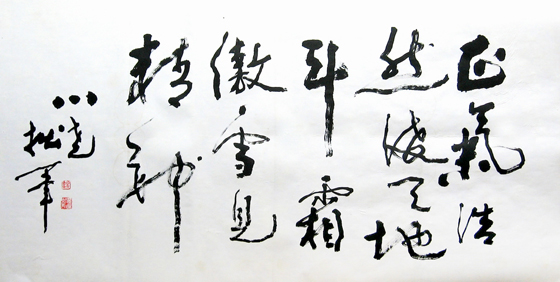 正氣浩
然凌天地
斗霜
傲雪見
精神
小 拙筆